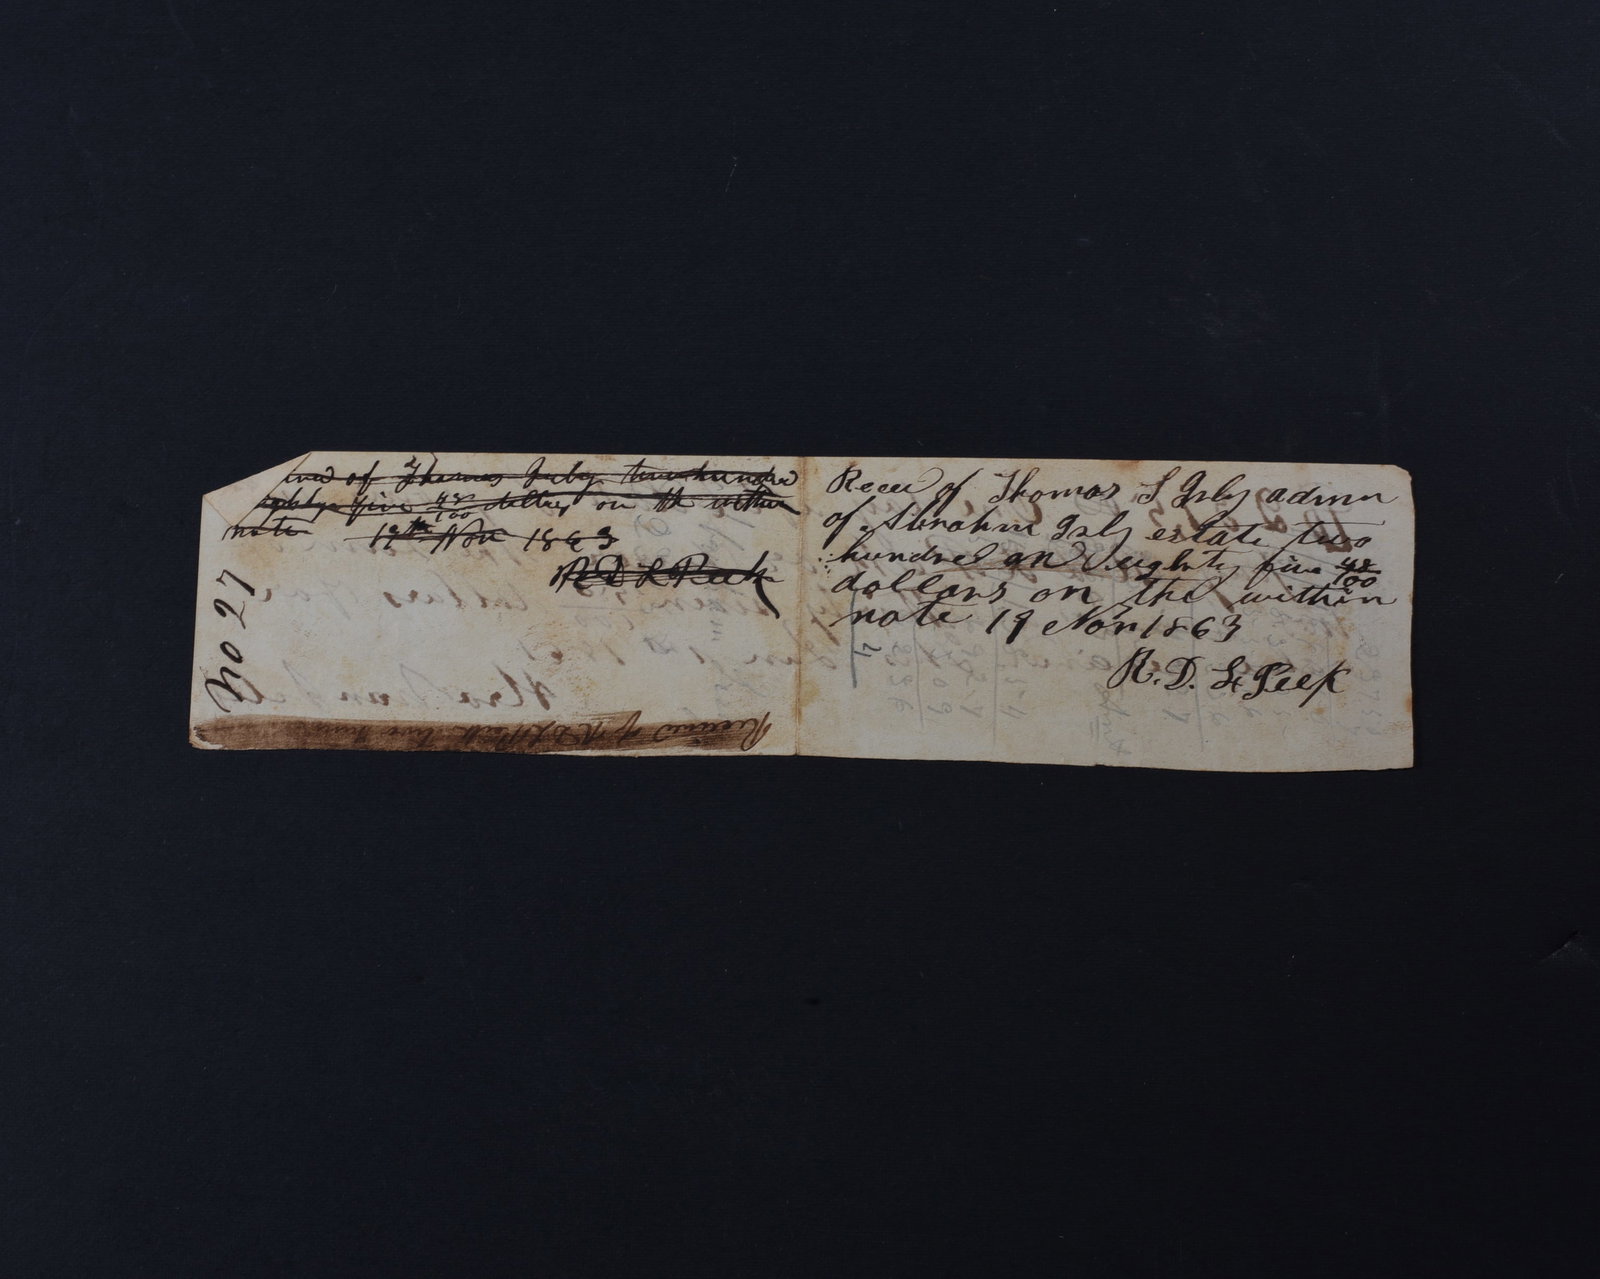 of Thomas Isly two hundred
eighty five 48/100 dollars on the within
note 19th Nov 1863
R D L Peek
No 27
Received of R D L Peek two
Recd of Thomas S Isly admr
of Abrahm Isly estate two
hundred and eighty five 48/100
dollars on the within
note 19 Nov 1863
R. D. L Peek